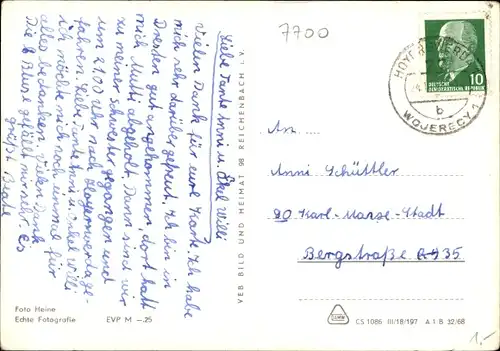 7700
Liebe Tante Anni u. Onkel Willi
Vielen Dank für eure Karte. Ich habe
mich sehr darüber gefreut. Ich bin in
Dresden gut angekommen, dort hatt
mich Mutti abgeholt. Dann sind wir
zu meiner Schwester gegangen und
um 21.00 Uhr nach Hoyerswerda ge-
fahren. Liebe Tante Anni u. Onkel Willi
ich möchte mich noch einmal für
alles bedanken. Vielen Dank
Die Bluse gefällt mir sehr. Es
grüßt Beate
Foto Heine
Echte Fotografie EVP M -.25
VEB BILD UND HEIMAT 98 REICHENBACH i. V.
HOYERSWERDA
b
WOJERECY 1
10
DEUTSCHE
DEMOKRATISCHE REPUBLIK
An
Anni Schüttler
90 Karl-Marx-Stadt
Bergstraße 35
CS 1086 III/18/197 A I B 32/68
1,-